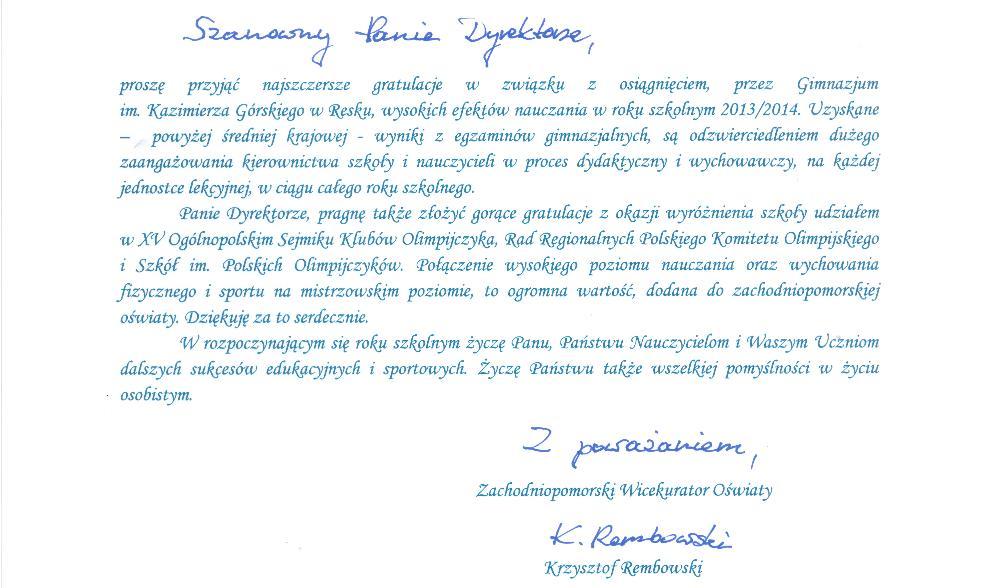 Szanowny Panie Dyrektorze,
proszę przyjąć najszczersze gratulacje w związku z osiągnięciem, przez Gimnazjum
im. Kazimierza Górskiego w Resku, wysokich efektów nauczania w roku szkolnym 2013/2014. Uzyskane
– powyżej średniej krajowej - wyniki z egzaminów gimnazjalnych, są odzwierciedleniem dużego
zaangażowania kierownictwa szkoły i nauczycieli w proces dydaktyczny i wychowawczy, na każdej
jednostce lekcyjnej, w ciągu całego roku szkolnego.
Panie Dyrektorze, pragnę także złożyć gorące gratulacje z okazji wyróżnienia szkoły udziałem
w XV Ogólnopolskim Sejmiku Klubów Olimpijczyka, Rad Regionalnych Polskiego Komitetu Olimpijskiego
i Szkół im. Polskich Olimpijczyków. Połączenie wysokiego poziomu nauczania oraz wychowania
fizycznego i sportu na mistrzowskim poziomie, to ogromna wartość, dodana do zachodniopomorskiej
oświaty. Dziękuję za to serdecznie.
W rozpoczynającym się roku szkolnym życzę Panu, Państwu Nauczycielom i Waszym Uczniom
dalszych sukcesów edukacyjnych i sportowych. Życzę Państwu także wszelkiej pomyślności w życiu
osobistym.
Z poważaniem,
Zachodniopomorski Wicekurator Oświaty
K. Rembowski
Krzysztof Rembowski